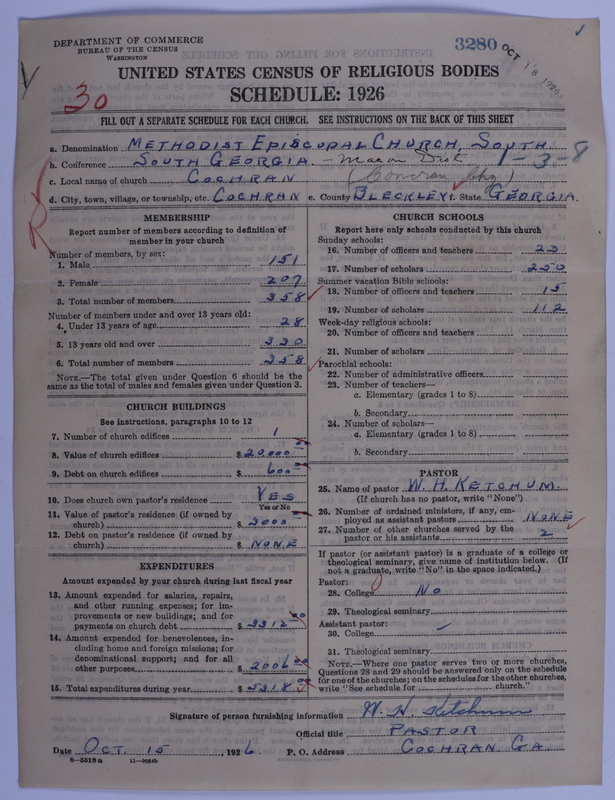 DEPARTMENT OF COMMERCE
BUREAU OF THE CENSUS
WASHINGTON
3280
OCT 18 1926
UNITED STATES CENSUS OF RELIGIOUS BODIES
30
SCHEDULE: 1926
FILL OUT A SEPARATE SCHEDULE FOR EACH CHURCH. SEE INSTRUCTIONS ON THE BACK OF THIS SHEET
a. Denomination METHODIST EPISCOPAL CHURCH, SOUTH
b. Conference SOUTH GEORGIA. — Macon Dist 1-3-8
c. Local name of church COCHRAN
d. City, town, village, or township, etc. COCHRAN e. County BLECKLEY f. State GEORGIA.
MEMBERSHIP
Report number of members according to definition of member in your church
Number of members, by sex:
1. Male 151
2. Female 207
3. Total number of members 358
Number of members under and over 13 years old:
4. Under 13 years of age 28
5. 13 years old and over 330
6. Total number of members 358
NOTE.—The total given under Question 6 should be the same as the total of males and females given under Question 3.
CHURCH BUILDINGS
See instructions, paragraphs 10 to 12
7. Number of church edifices 1
8. Value of church edifices $ 20000
9. Debt on church edifices $ 600
10. Does church own pastor's residence YES
Yes or No
11. Value of pastor's residence (if owned by church) $ 3000
12. Debt on pastor's residence (if owned by church) $ NONE
EXPENDITURES
Amount expended by your church during last fiscal year
13. Amount expended for salaries, repairs, and other running expenses; for improvements or new buildings; and for payments on church debt $ 3312
14. Amount expended for benevolences, including home and foreign missions; for denominational support; and for all other purposes $ 2006
15. Total expenditures during year $ 5318
CHURCH SCHOOLS
Report here only schools conducted by this church
Sunday schools:
16. Number of officers and teachers 23
17. Number of scholars 250
Summer vacation Bible schools:
18. Number of officers and teachers 15
19. Number of scholars 112
Week-day religious schools:
20. Number of officers and teachers
21. Number of scholars
Parochial schools:
22. Number of administrative officers
23. Number of teachers—
a. Elementary (grades 1 to 8)
b. Secondary
24. Number of scholars—
a. Elementary (grades 1 to 8)
b. Secondary
PASTOR
25. Name of pastor W. H. KETCHUM.
(If church has no pastor, write "None")
26. Number of ordained ministers, if any, employed as assistant pastors NONE
27. Number of other churches served by the pastor or his assistants 2
If pastor (or assistant pastor) is a graduate of a college or theological seminary, give name of institution below. (If not a graduate, write "No" in the space indicated.)
Pastor:
28. College No
29. Theological seminary
Assistant pastor:
30. College
31. Theological seminary
NOTE.—Where one pastor serves two or more churches, Questions 28 and 29 should be answered only on the schedule for one of the churches; on the schedules for the other churches, write "See schedule for church."
Signature of person furnishing information W. H. Ketchum
Official title PASTOR
Date OCT. 15 1926 P. O. Address COCHRAN. GA.
8-5518a 11-9024b